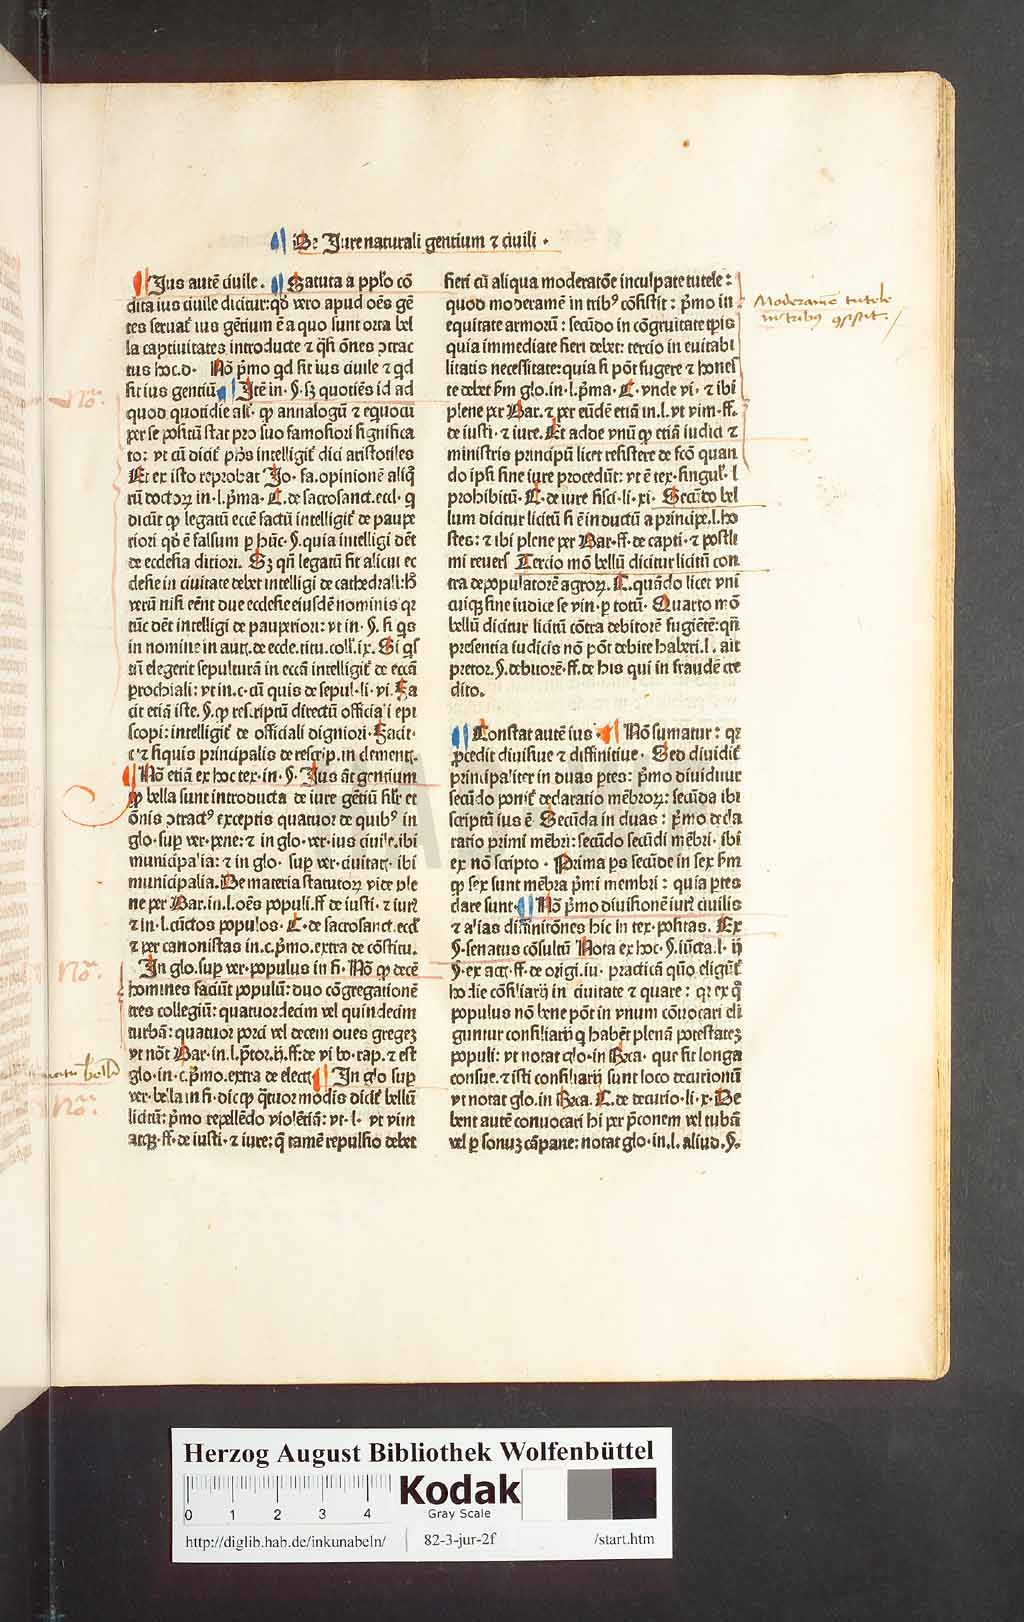 De Jure naturali gentium ⁊ ciuili .
Jus autē ciuile . Statuta a ppl'o cō
dita ius ciuile dicitur: qd' vero apud oēs gē
tes seruat᷑ ius gētium ē a quo sunt orta bel
la captiuitates introducte ⁊ q̄si ōnes ↄtrac
tus hoc.d. Nō p̄mo qd sit ius ciuile ⁊ qd
sit ius gentiū Itē in . §. sʒ quotiēs id ad
quod quotidie al'. ꝙ annalogū ⁊ equocū
per se positū stat pro suo famosiori significa
to: vt cū dicit᷑ ph̄s intelligit᷑ dici aristotiles
Et ex isto reprobat Jo. fa. opinionē aliq̄
rū doctoꝝ in .l. p̄ma. C. de sacrosanct. eccl. q
dicūt ꝙ legatū eccē factū intelligit᷑ de paupe
riori qd' ē falsum ꝑ hūc. §. quia intelligi dēt
de ecclesia ditiori. Sʒ qn̄ legatū fit alicui ec
clesie in ciuitate debet intelligi de cathedrali: h̄
verū nisi eēnt due ecclesie eiusdē nominis qr
tūc dēt intelligi de pauperiori: vt in . §. si qs
in nomine in auc̄. de eccle. titu. coll'. ix. Si qs
tn̄ elegerit sepulturā in eccā intelligit᷑ de eccā
prochiali: vt in .c. cū quis de sepul. li. vi. Fa
cit etiā iste. §. ꝙ rescriptū directū officiali epi
scopi: intelligit᷑ de officiali digniori. Facit.
c. ⁊ si quis principalis de rescrip. in clementꝭ.
Nō etiā ex hoc tex. in . §. Jus āt gentium
ꝙ bella sunt introducta de iure gētiū sil'r et
ōnis ↄtract᷒ exceptis quatuor de quib᷒ in
glo. suꝑ ver. pene: ⁊ in glo. ver. ius ciuile. ibi
municipalia: ⁊ in glo. suꝑ ver. ciuitatꝭ. ibi
municipalia. De materia statutoꝝ vide ple
ne per Bar. in .l. oēs populi. ff de iusti. ⁊ iur̄
⁊ in .l. cūctos populos. C. de sacrosanct. eccl'
⁊ per canonistas in .c. p̄mo. extra de cōstitu.
In glo. suꝑ ver. populus in fi. Nō ꝙ decē
homines faciūt populū: duo cōgregationē
tres collegiū: quatuordecim vel quindecim
turbā: quatuor porci vel decem oues gregeʒ
vt nōt Bar. in .l. p̄tor. ij. ff. de vi bo. rap. ⁊ est
glo. in .c. p̄mo. extra de electꝭ In glo suꝑ
ver. bella in fi. dic ꝙ q̄tuor modis dicit᷑ bellū
licitū: p̄mo repellēdo violētiā: vt .l. vt vim
atqʒ. ff. de iusti. ⁊ iure: q̄ tamē repulsio debet
fieri cū aliqua moderatōe inculpate tutele:
quod moderamē in trib᷒ cōsistit: p̄mo in
equitate armorū: secūdo in cōgruitate tꝑis
quia immediate fieri debet: tercio in euitabi
litatis necessitate: quia si pōt fugere ⁊ hones
te debet s̄m glo. in .l. p̄ma. C. vnde vi. ⁊ ibi
plene per Bar. ⁊ per eūdē etiā in .l. vt vim. ff.
de iusti. ⁊ iure. Et adde vnū ꝙ etiā iudici ⁊
ministris principū licet resistere de fcō quan
do ipsi sine iure procedūt: vt ē tex. singul'. l
prohibitū. C. de iure fisci. li. xi. Secūdo bel
lum dicitur licitū si ē inductū a principe. l. ho
stes: ⁊ ibi plene per Bar. ff. de capti. ⁊ postli
mi reuers Tercio mō bellū dicitur licitū con
tra depopulatorē agroꝝ. C. quādo licet vni
cuiqʒ sine iudice se vin. ꝑ totū. Quarto mō
bellū dicitur licitū cōtra debitorē fugiētē: qn̄
presentia iudicis nō pōt debite haberi. l. ait
pretor. §. debitorē. ff. de his qui in fraudē cre
dito.
Constat autē ius. Nō sumatur: qr
ꝓcedit diuisiue ⁊ diffinitiue. Seo diuidit᷑
principaliter in duas ptes: p̄mo diuiduur
secūdo ponit᷑ declaratio mēbroꝝ: secūda ibi
scriptū ius ē Secūda in duas: p̄mo decla
ratio primi mēbri: secūdo secūdi mēbri. ibi
ex nō scripto. Prima ps secūde in sex s̄m
ꝙ sex sunt mēbra p̄mi membri: quia ptes
clare sunt. Nō p̄mo diuisionē iur̄ ciuilis
⁊ alias diffinitōnes hic in tex. positas. Ex
§. senatus cōsultū Nota ex hoc. §. iūcta. l. ij
§. ex actꝭ. ff. de origi. iu. practicā quō eligūt᷑
hodie cōsiliarij in ciuitate ⁊ quare: qr ex q̄
populus nō bene pōt in vnum cōuocari eli
guntur consiliarij q habēt plenā potestateʒ
populi: vt notat glo. in Bra. que sit longa
consue. ⁊ isti consiliarij sunt loco decurionū
vt notat glo. in Bra. C. de decurio. li. x. De
bent autē conuocari hi per p̄conem vel tubā
vel ꝑ sonuʒ cāpane: notat glo. in .l. aliud. §.
Moderamē tutele
in tribꝰ ↄsistit.
No.
No.
No.
bella
Herzog August Bibliothek Wolfenbüttel
0 1 2 3 4
Kodak
Gray Scale
http://diglib.hab.de/inkunabeln/ 82-3-jur-2f /start.htm